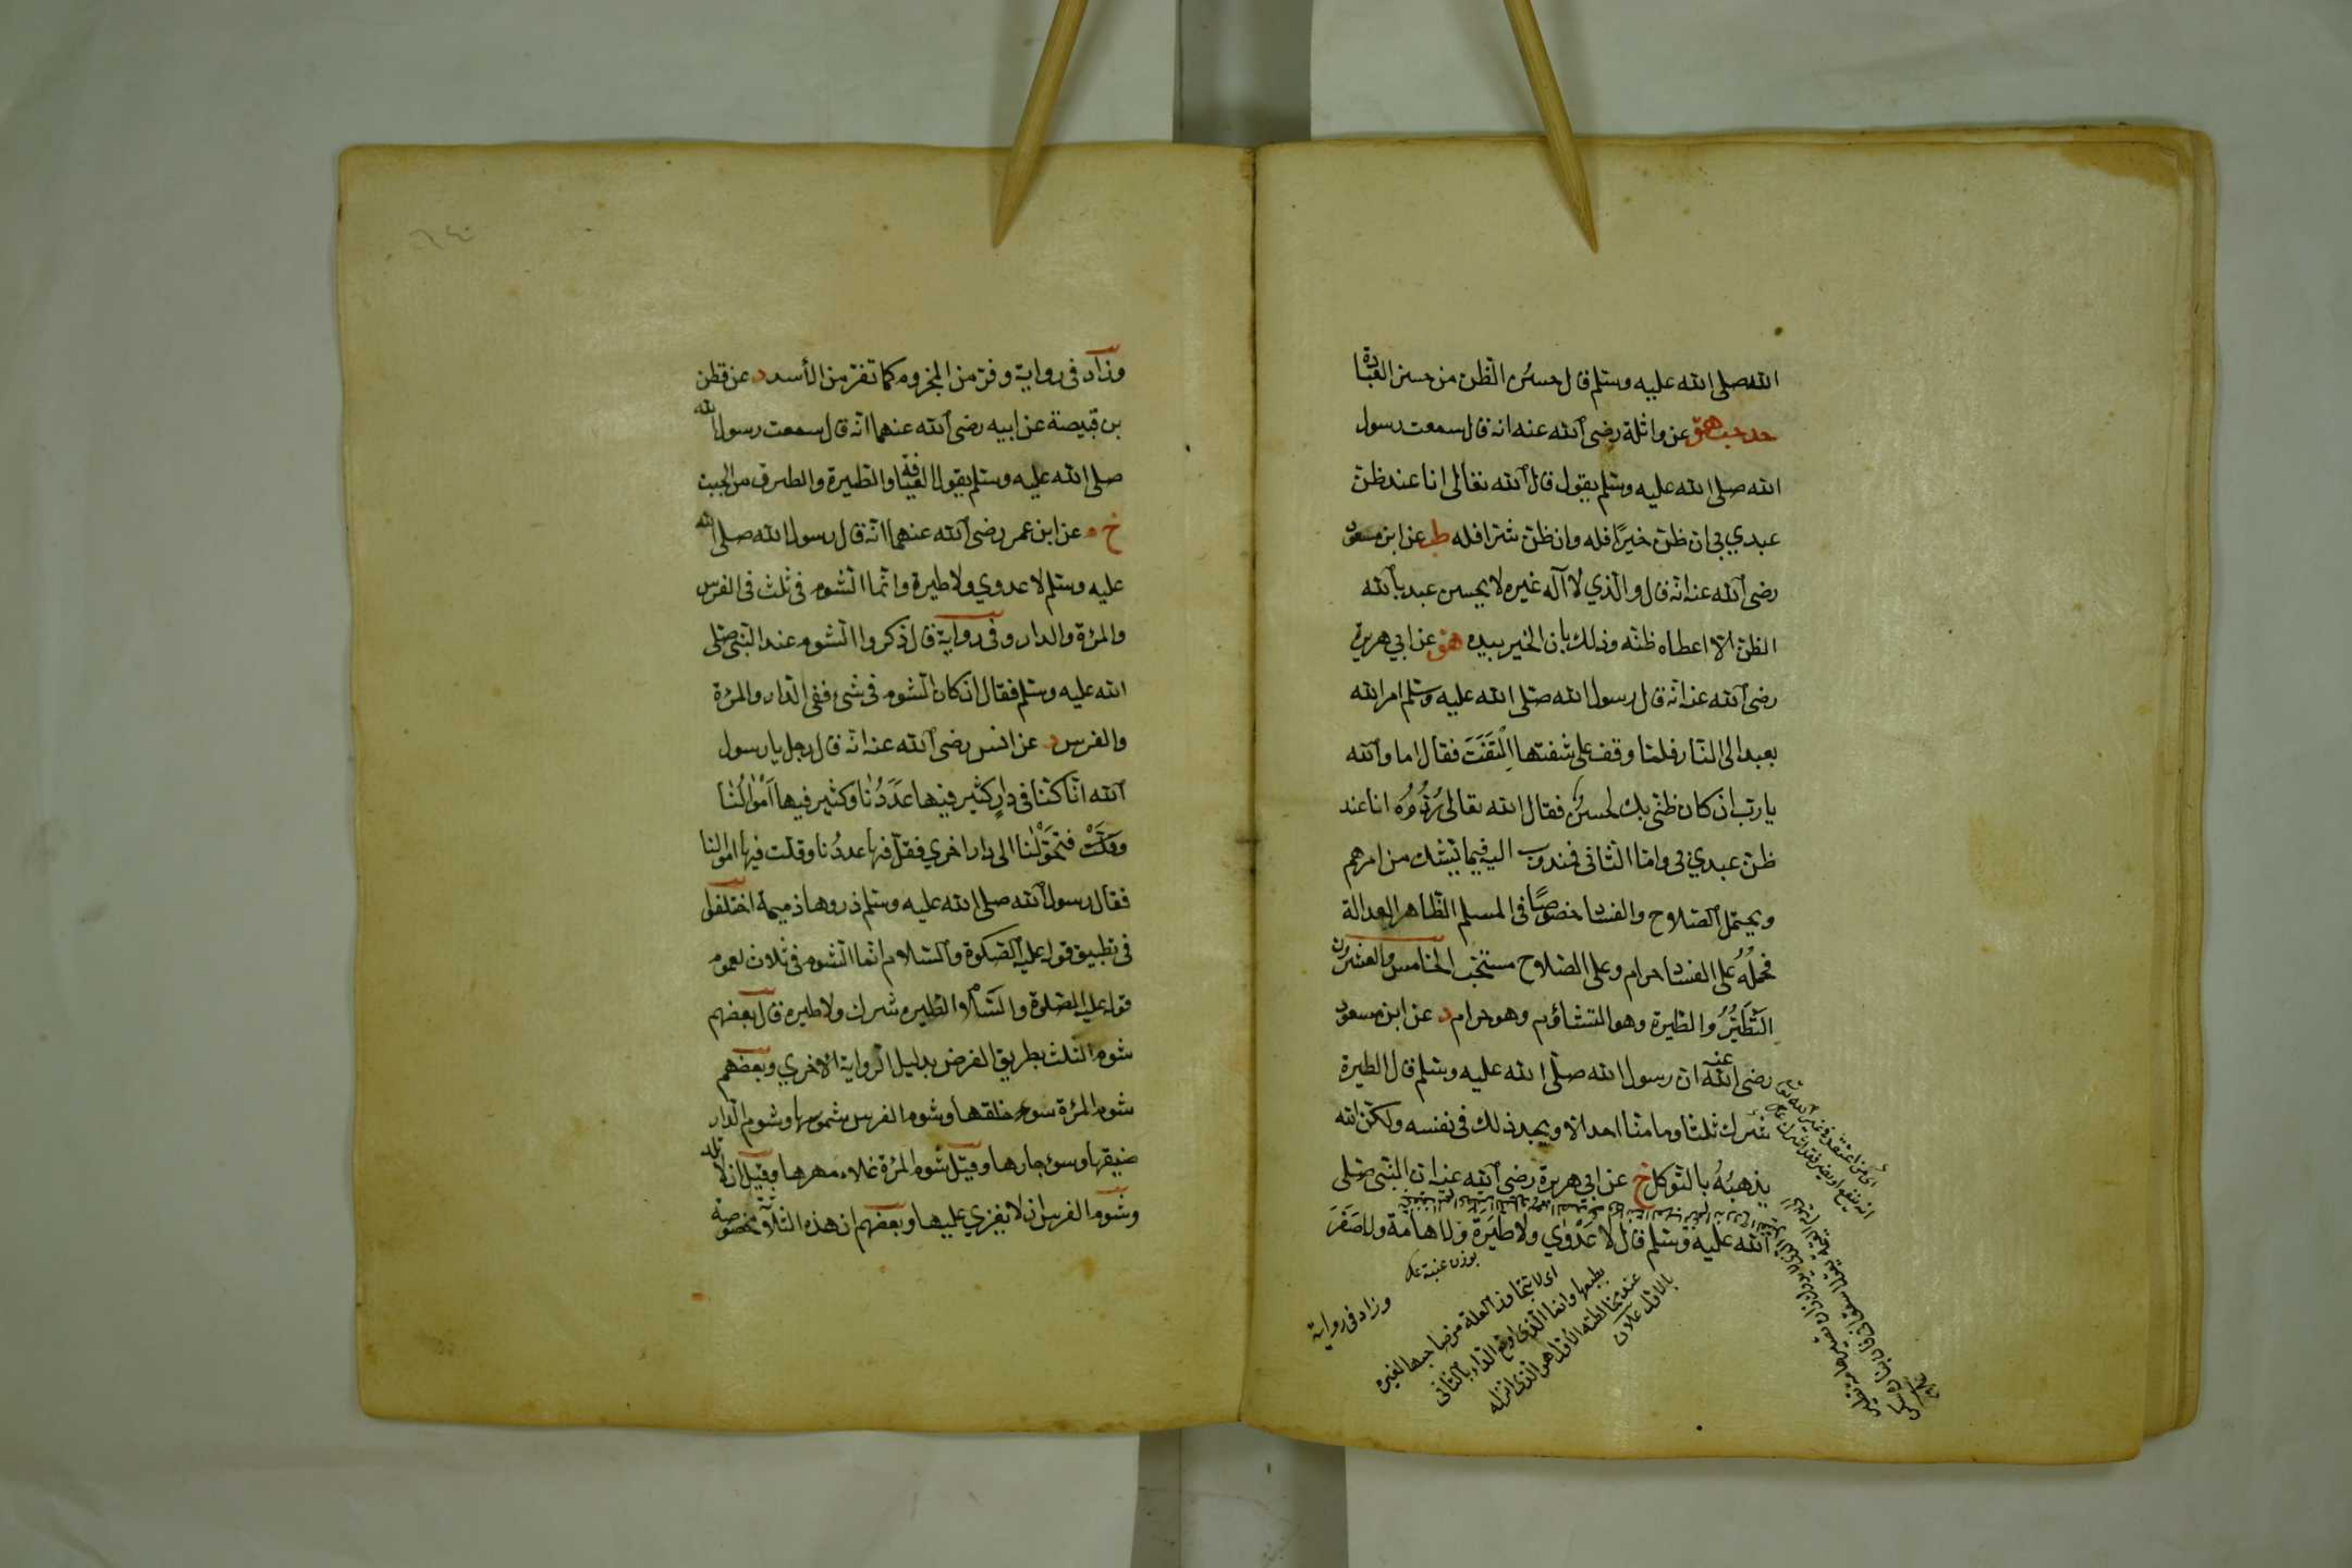 الله صلى الله عليه وسلم قال حسن الظن من حسن العبادة
حد حب هق عن واثلة رضى الله عنه انه قال سمعت رسول
الله صلى الله عليه وسلم يقول قال الله تعالى انا عند ظن
عبدي بي ان ظن خيرًا فله وان ظن شرا فله ط عن ابن مسعود
رضى الله عنه انه قال والذي لا اله غيره لا يحسن عبد بالله
الظن الا اعطاه ظنه وذلك بان الخير بيده هق عن ابي هريرة
رضى الله عنه انه قال رسول الله صلى الله عليه وسلم امر الله
بعبد الى النار فلما وقف على شفتها اِلْتَفَتَ فقال اما والله
يا رب ان كان ظنى بك لحسن فقال الله تعالى رُدُّوهُ انا عند
ظن عبدي بى واما الثانى فمندوب اليه فيما يشك من امرهم
ويحتمل الصلاح والفساد خصوصًا فى المسلم الظاهر العدالة
فحمله على الفساد حرام وعلى الصلاح مستحب الخامس والعشرون
التَّطَيُّرُ والطيرة وهو التشاؤم وهو حرام د عن ابن مسعود
رضى الله عنه ان رسول الله صلى الله عليه وسلم قال الطيرة
شرك ثلثا وما منا احد الا ويجد ذلك فى نفسه ولكن الله
يذهبُهُ بالتوكل خ عن ابي هريرة رضى الله عنه ان النبى صلى
الله عليه وسلم قال لا عَدْوٰي ولا طِيَرَة ولا هامة ولا صَفَرَ
بوزن عنبة
اى لا يتجاوز العلة من صاحبها لغيره
بطبعها وانما الذى اوقع الداء بالثانى
عند مخالطته الأول هو الذى انزله
بالاول
وزاد فى رواية
وزاد فى رواية وفر من المجذوم كما تفر من الأسد د عن قطن
بن قبيصة عن ابيه رضى الله عنهما انه قال سمعت رسول الله
صلى الله عليه وسلم يقول العيافة والطيرة والطرق من الجبت
خ م عن ابن عمر رضى الله عنهما انه قال رسول الله صلى الله
عليه وسلم لا عدوي ولا طيرة وانما الشوم فى ثلث فى الفرس
والمرءة والدار وفى رواية قال ذكروا الشوم عند النبى صلى
الله عليه وسلم فقال ان كان الشوم فى شئ ففى الدار والمرءة
والفرس د عن انس رضى الله عنه انه قال رجل يا رسول
الله انا كنا فى دارٍ كثير فيها عَدَدُنا وكثير فيها اَمْوَالُنَا
فتحَوَّلْنا الى دار اخري فقل فيها عددُنا وقلت فيها اموالنا
فقال رسول الله صلى الله عليه وسلم ذروها ذميمة اختلفوا
فى تطبيق قوله عليه الصلوة والسلام انما الشوم فى ثلاث لعموم
قوله عليه الصلوة والسلام الطيره شرك ولا طيره قال بعضهم
شوم الثلث بطريق الفرض بدليل الرواية الاخري وبعضهم
شوم المرءة سوء خلقها وشوم الفرس شموسها وشوم الدار
ضيقها وسوء جارها وقيل شوم المرءة غلاء مهرها وقيل ان لا تلد
وشوم الفرس ان لا يغزي عليها وبعضهم ان هذه الثلاثة مخصوصة